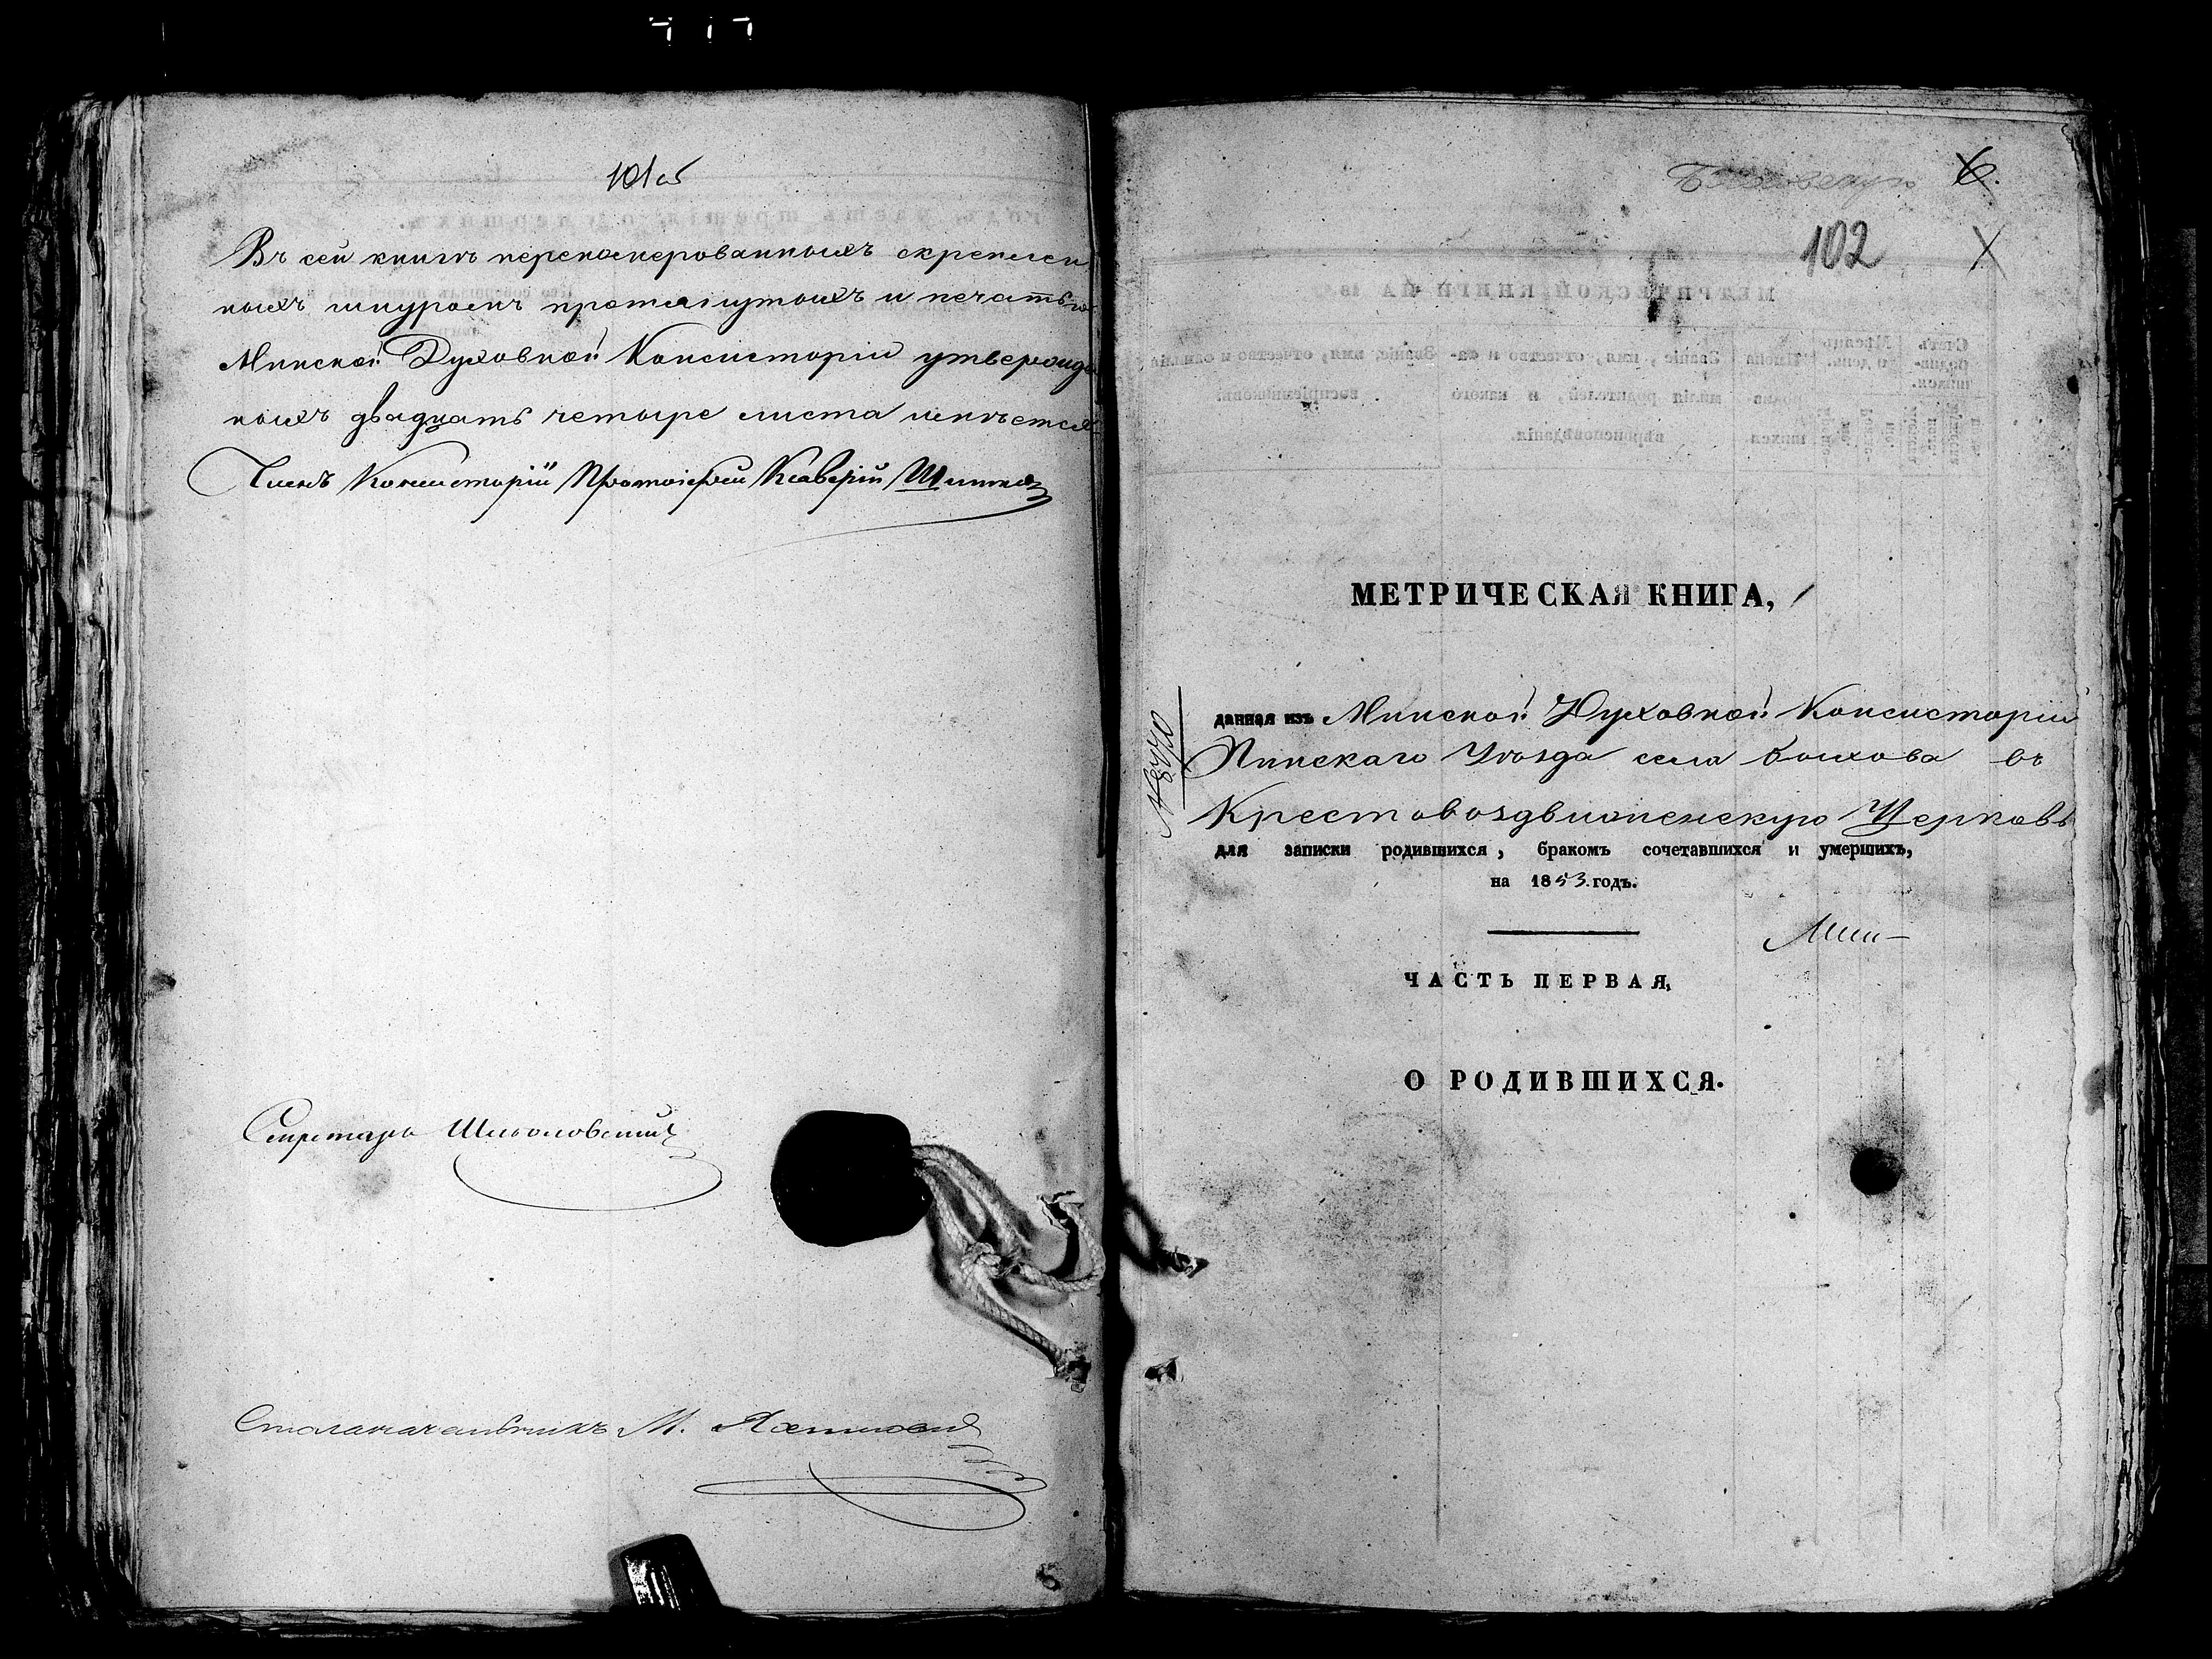 101об
Въ сей книгѣ перенамерованныхъ скреплен
ныхъ шнуромъ протянутыхъ и печатью
Минской Духовной Консисторіи утвержде
ныхъ двадцать четыре листа имѣется
Членъ Консисторіи Протоіерей Ксаверій
Секретарь
Столоначальникъ М.
6.
102
МЕТРИЧЕСКАЯ КНИГА,
№ 8770
данная изъ Минской Духовной Консисторіи
Пинскаго Уѣзда села Быхова въ
Крестовоздвиженскую Церковь
для записки родившихся, бракомъ сочетавшихся и умершихъ,
на 1853. годъ.
Мин-
ЧАСТЬ ПЕРВАЯ,
О РОДИВШИХСЯ.